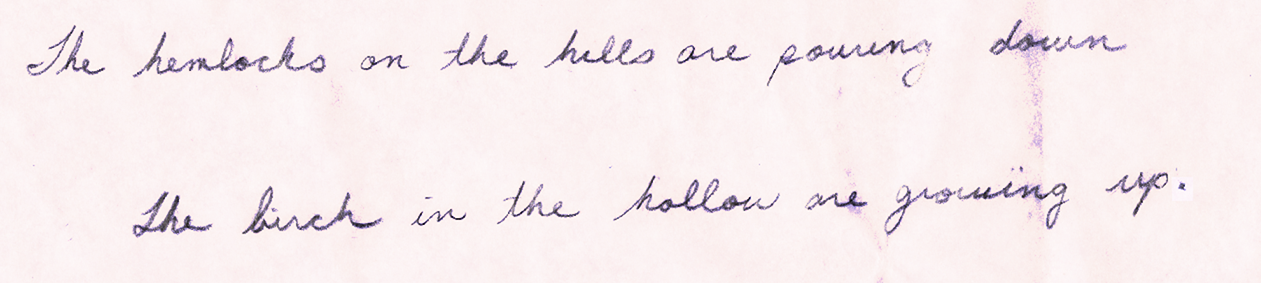 The hemlocks on the hills are pouring down
The birch in the hollow are growing up.